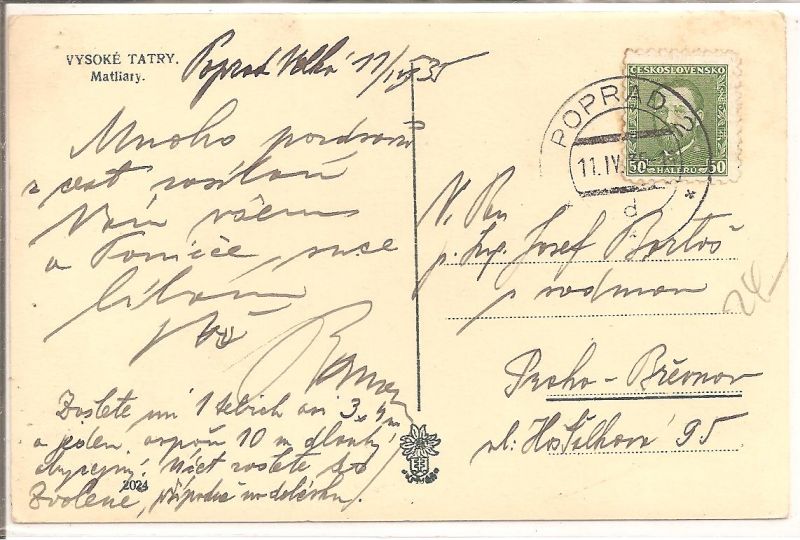 VYSOKÉ TATRY.
Matliary.
Poprad Velká 11/IV 35
Mnoho pozdravů
z cest zasílám
Vám všem
a Toničce, ruce
líbám
Váš
Zašlete mi 1 3 x 4 m
a jeden aspoň 10 m dlouhý
obyčejný. Účet zašlete do
Zvolene, případně na dobírku.
2024
ČESKOSLOVENSKO
50 HALÉŘŮ 50
POPRAD 2
11.IV.35
d
V. Pan
p. Ing. Josef Bartoš
s rodinou
Praha - Břevnov
ul: Hošťálkova 95
24